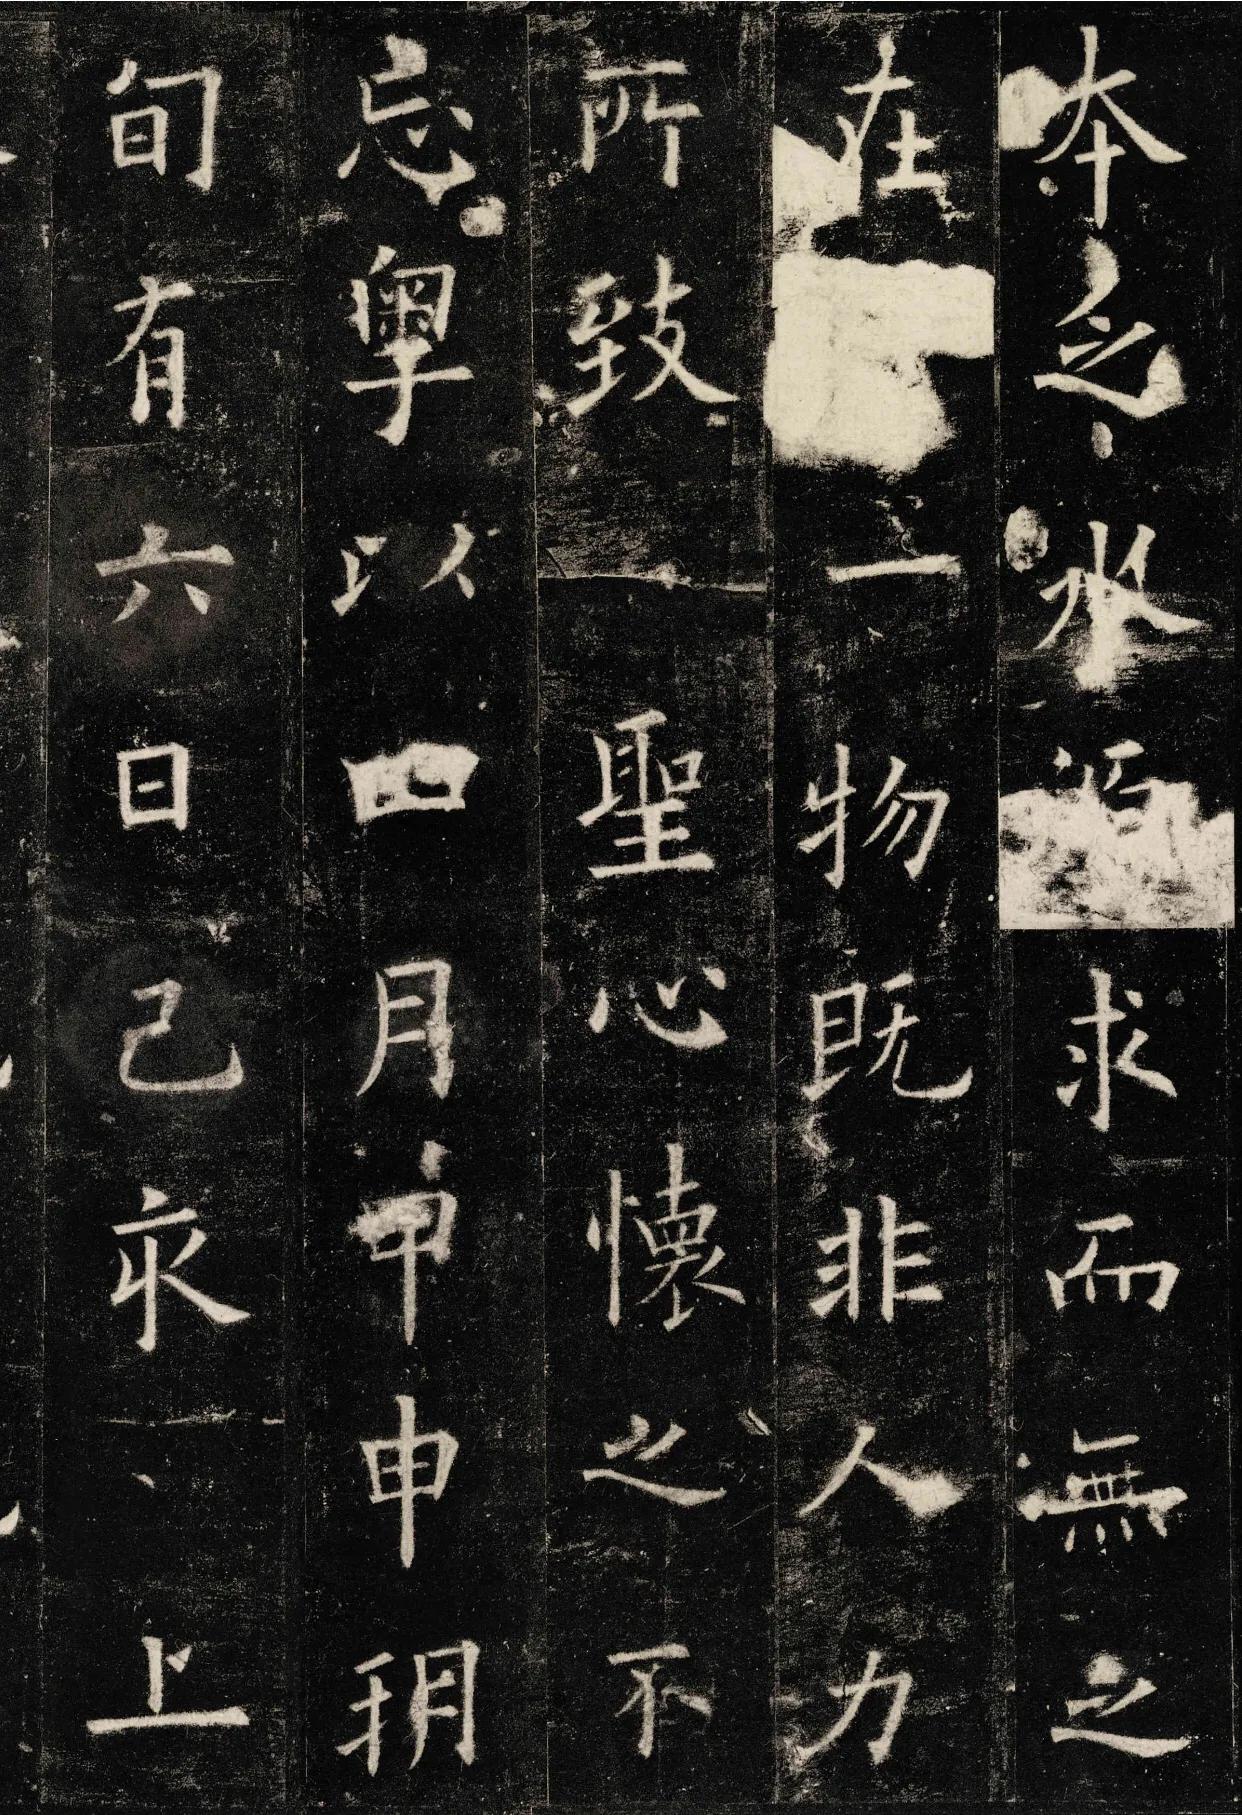 本之水源求而無之
在一物既非人力
所致聖心懷之不
忘粤以四月甲申朔
旬有六日己亥上